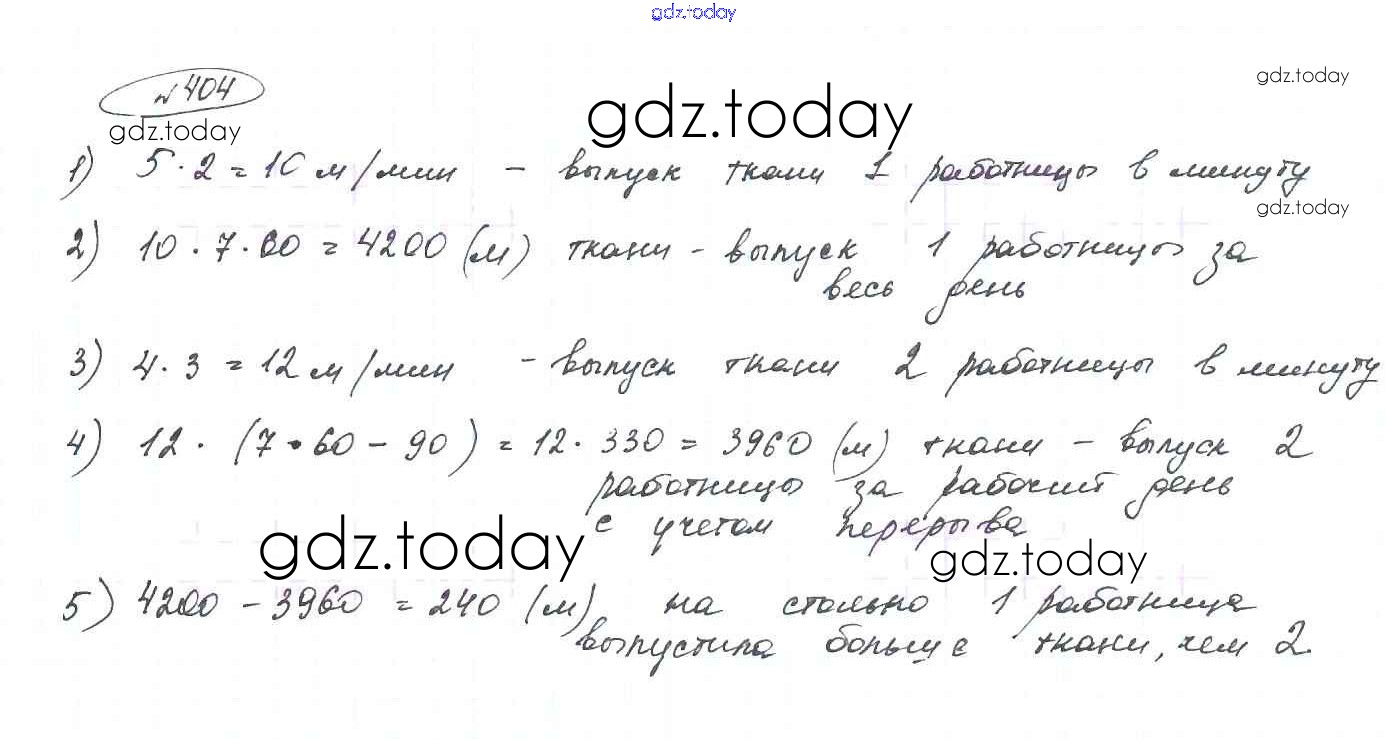 gdz.today
№404
gdz.today
gdz.today
gdz.today
1) 5·2=10 м/мин – выпуск ткани 1 работницы в минуту
gdz.today
2) 10·7·60=4200 (м) ткани – выпуск 1 работницы за
весь день
3) 4·3=12 м/мин – выпуск ткани 2 работницы в минуту
4) 12·(7·60–90)=12·330=3960 (м) ткани – выпуск 2
работницы за рабочий день
с учетом перерыва
gdz.today
gdz.today
5) 4200–3960=240 (м) на столько 1 работница
выпустила больше ткани, чем 2.